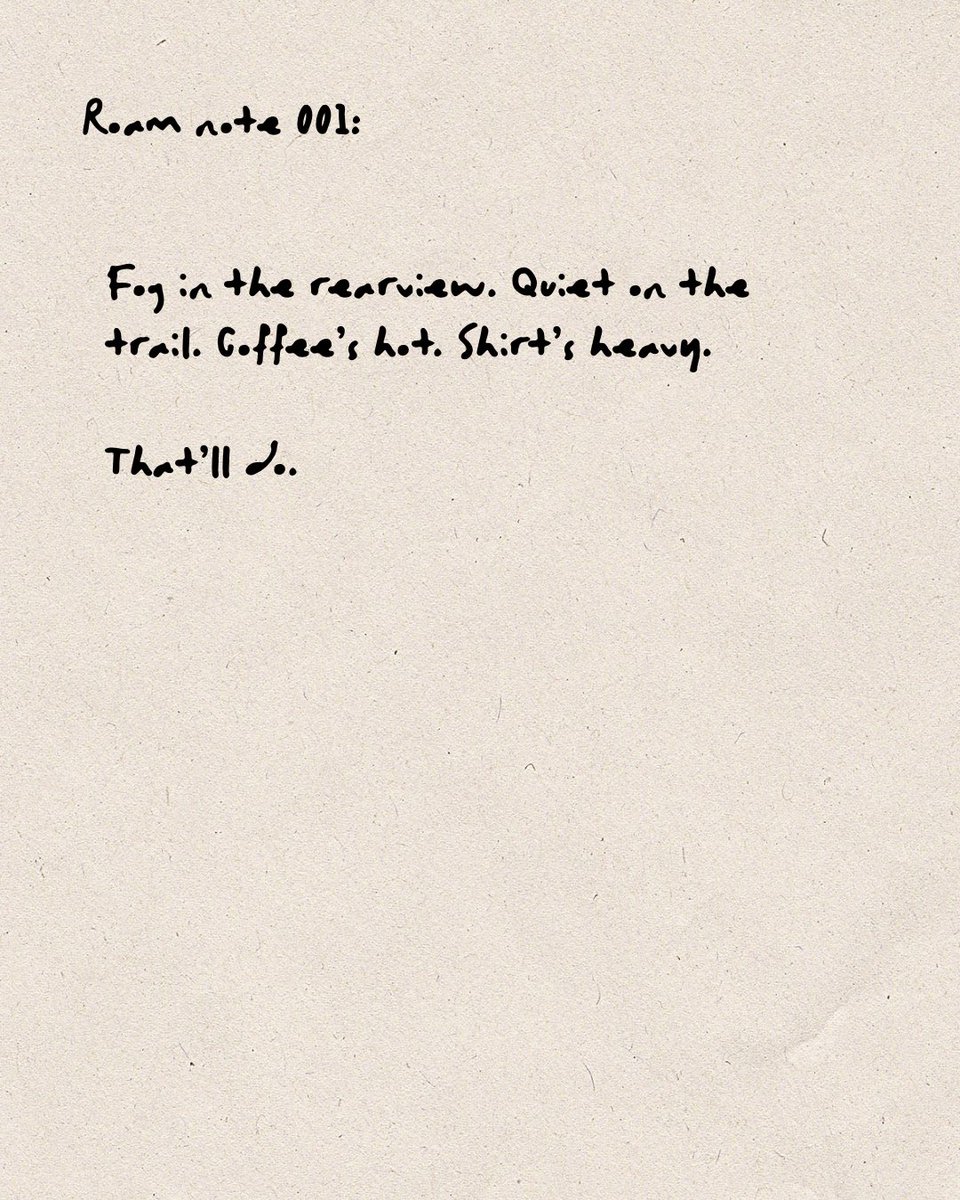 Roam note 001:
Fog in the rearview. Quiet on the
trail. Coffee's hot. Shirt's heavy.
That'll do.